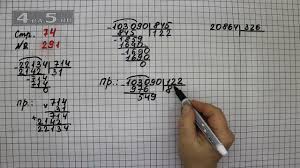 4 РА 5
Стр. 74
№ 291
103090 845
845 122
1859
1690
1690
1690
0
20864 326
22134 714
2142 31
714
714
0
пр.: 714
31
714
2142
22134
пр.: 103090 122
976 8
549